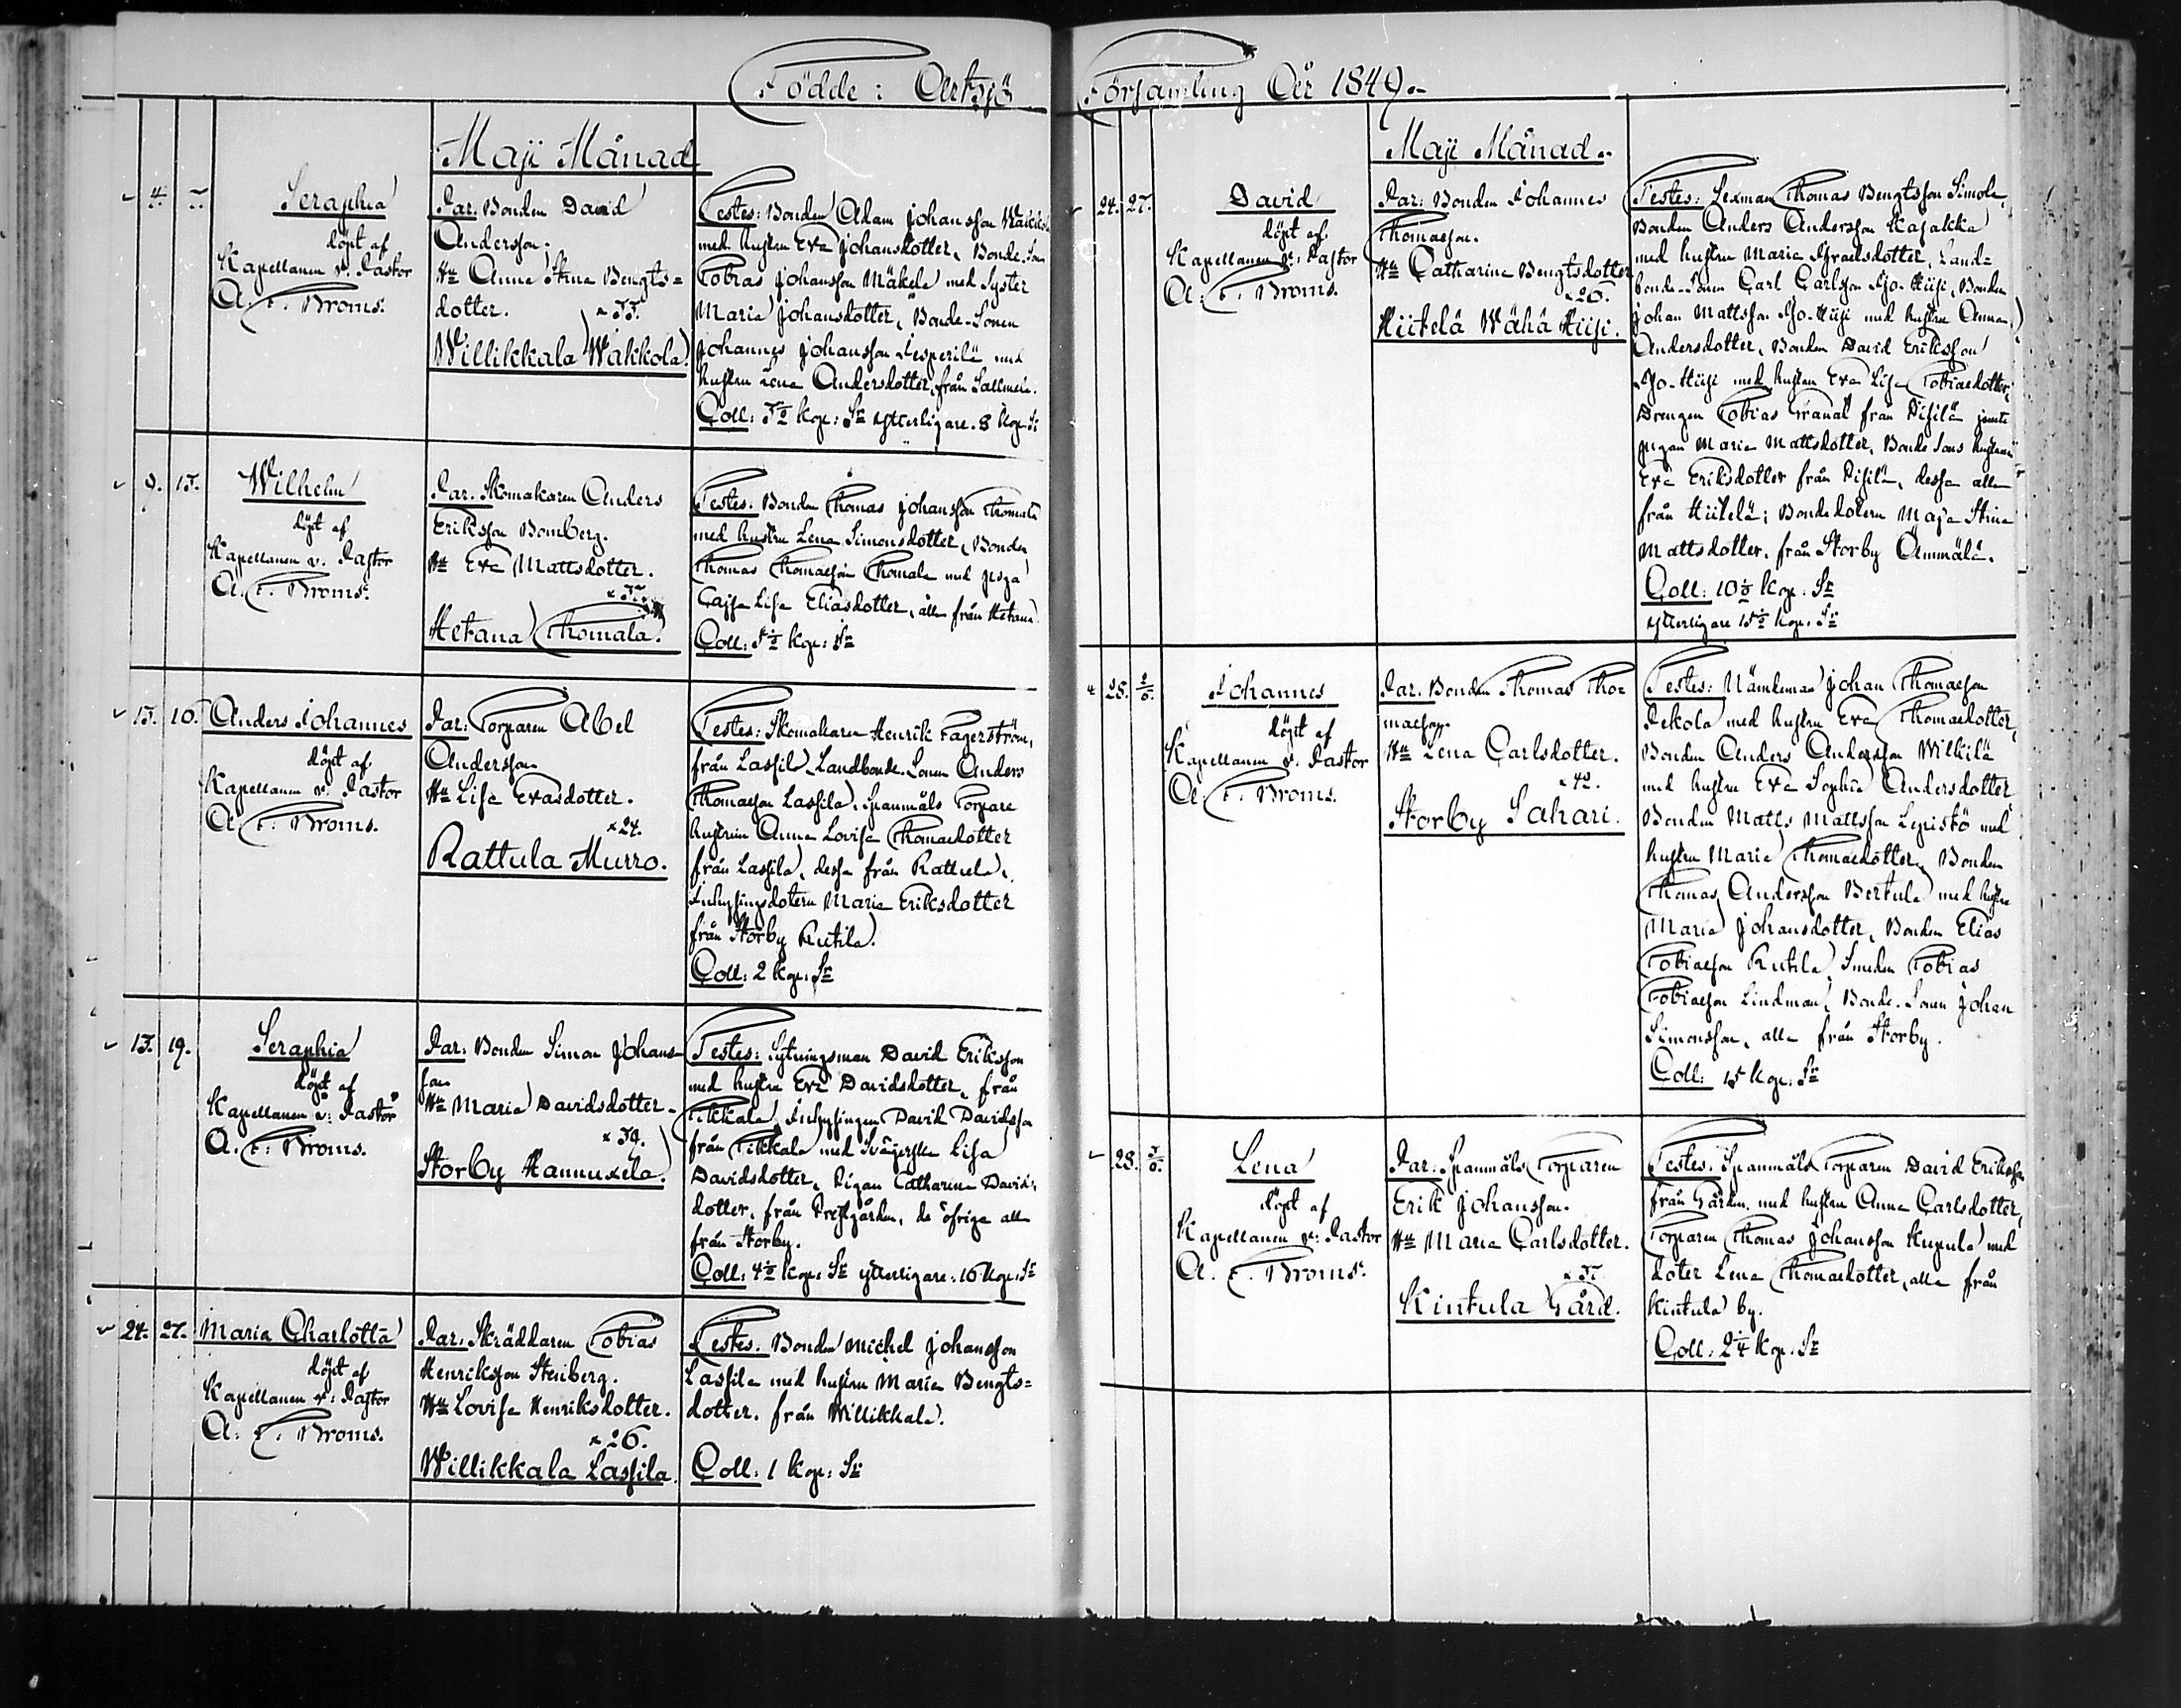 Födde: Artsjö
Församling År 1849.
Maji Månad
4.
Seraphia
döpt af
Kapellanen v. Pastor
A. F. Broms.
Par. Bonden David
Andersson.
Hu Anna Stina Bengts=
dotter.
Willikkala Wäkkola.
Testes: Bonden Adam Johansson
med hustru Eva Johansdotter, Bonde-Son
Tobias Johansson Mäkelä med Syster
Maria Johansdotter, Bonde-Sonen
Johannes Johansson med
hustru Lena Andersdotter, från
Coll: Kop: Sr ytterligare 8 Kop. Sr
9. 13.
Wilhelm
döpt af
Kapellanen v. Pastor
A. F. Broms.
Par. Skomakaren Anders
Eriksson Bomberg.
Hu Eva Mattsdotter.
Hetana Thomala.
Testes. Bonden Thomas Johansson Thomala
med hustru Lena Simonsdotter, Bonden
Thomas Thomasson Thomala med piga
Cajsa Lisa Eliasdotter, alla från Hetana
Coll: Kop: Sr
13. 16.
Anders Johannes
döpt af
Kapellanen v. Pastor
A. F. Broms.
Par: Torparen Abel
Andersson
Hu Lisa Evasdotter.
24.
Rattula Murro.
Testes: Skomakaren Henrik Fagerström,
från Lassila, Landbonde-Sonen Anders
Thomasson Lassila, Spanmåls Torpare
hustrun Anna Lovisa Thomasdotter
från Lassila, dessa från Rattula,
Inhysingsdotern Maria Eriksdotter
från Storby Rutila.
Coll: 2 Kop: Sr
13. 19.
Seraphia
döpt af
Kapellanen v: Pastor
A. F. Broms.
Par: Bonden Simon Johans=
son
Hu Maria Davidsdotter
39.
Storby Hannuxela.
Testes: Sytningsman David Eriksson
med hustru Eva Davidsdotter, från
Tikkala, Inhysingen David Davidsson
från Tikkala med Svägerskan Lisa
Davidsdotter, Pigan Catharina Davids
dotter, från Prestgården, de öfriga alla
från Storby.
Coll: 4½ Kop: Sr ytterligare: 16 Kop: Sr
24. 27.
Maria Charlotta
döpt af
Kapellanen v: Pastor
A. F. Broms.
Par: Skräddaren Tobias
Henriksson Stenberg.
Hu Lovisa Henriksdotter.
26.
Willikkala Lassila.
Testes. Bonden Michel Johansson
Lassila med hustru Maria Bengts=
dotter. från Willikkala.
Coll: 1 Kop: Sr
Maji Månad.
24. 27.
David
döpt af
Kapellanen v: Pastor
A. F. Broms.
Par: Bonden Johannes
Thomasson.
Hu Catharina Bengtsdotter
26.
Hiitelä Wähä Hiisi.
Testes: Sexman Thomas Bengtsson Simola,
Bonden Anders Andersson Kasakka
med hustru Maria Israelsdotter, Land=
bonde-Sonen Carl Carlsson Iso-Hiisi, Bonden
Johan Mattsson Iso-Hiisi med hustru Anna
Andersdotter, Bonden David Eriksson
Iso-Hiisi med hustru Eva Lisa Tobiasdotter,
Drengen Tobias Granat från Pihilä jemte
pigan Maria Mattsdotter, Bonde Sons hustrun
Eva Eriksdotter från Pihilä, dessa alla
från Hiitelä; Bondedotern Maja Stina
Mattsdotter, från Storby Ammälä.
Coll: 10½ Kop: Sr
ytterligare 15½ Kop: Sr
28. 2/6.
Johannes
döpt af
Kapellanen v. Pastor
A. F. Broms.
Par. Bonden Thomas Tho=
masson.
Hu Lena Carlsdotter.
42.
Storby Sahari.
Testes: Nämdeman Johan Thomasson
Pekola med hustru Eva Thomasdotter,
Bonden Anders Andersson Wilkilä
med hustru Eva Sophia Andersdotter
Bonden Matts Mattsson Lepistö med
hustru Maria Thomasdotter, Bonden
Thomas Andersson Bertula med hustru
Maria Johansdotter, Bonden Elias
Tobiasson Rutila, Smeden Tobias
Tobiasson Lindman, Bonde-Sonen Johan
Simonsson, alla från Storby.
Coll: 15 Kop: Sr
28. 3/6.
Lena
döpt af
Kapellanen v: Pastor
A. F. Broms.
Par: Spanmåls Torparen
Erik Johansson.
Hu Maria Carlsdotter.
Kintula Gård.
Testes. Spanmåls Torparen David Eriksson
från Gården, med hustru Anna Carlsdotter,
Torparen Thomas Johansson med
doter Lena Thomasdotter, alla från
Kintula by.
Coll: 2¼ Kop: Sr